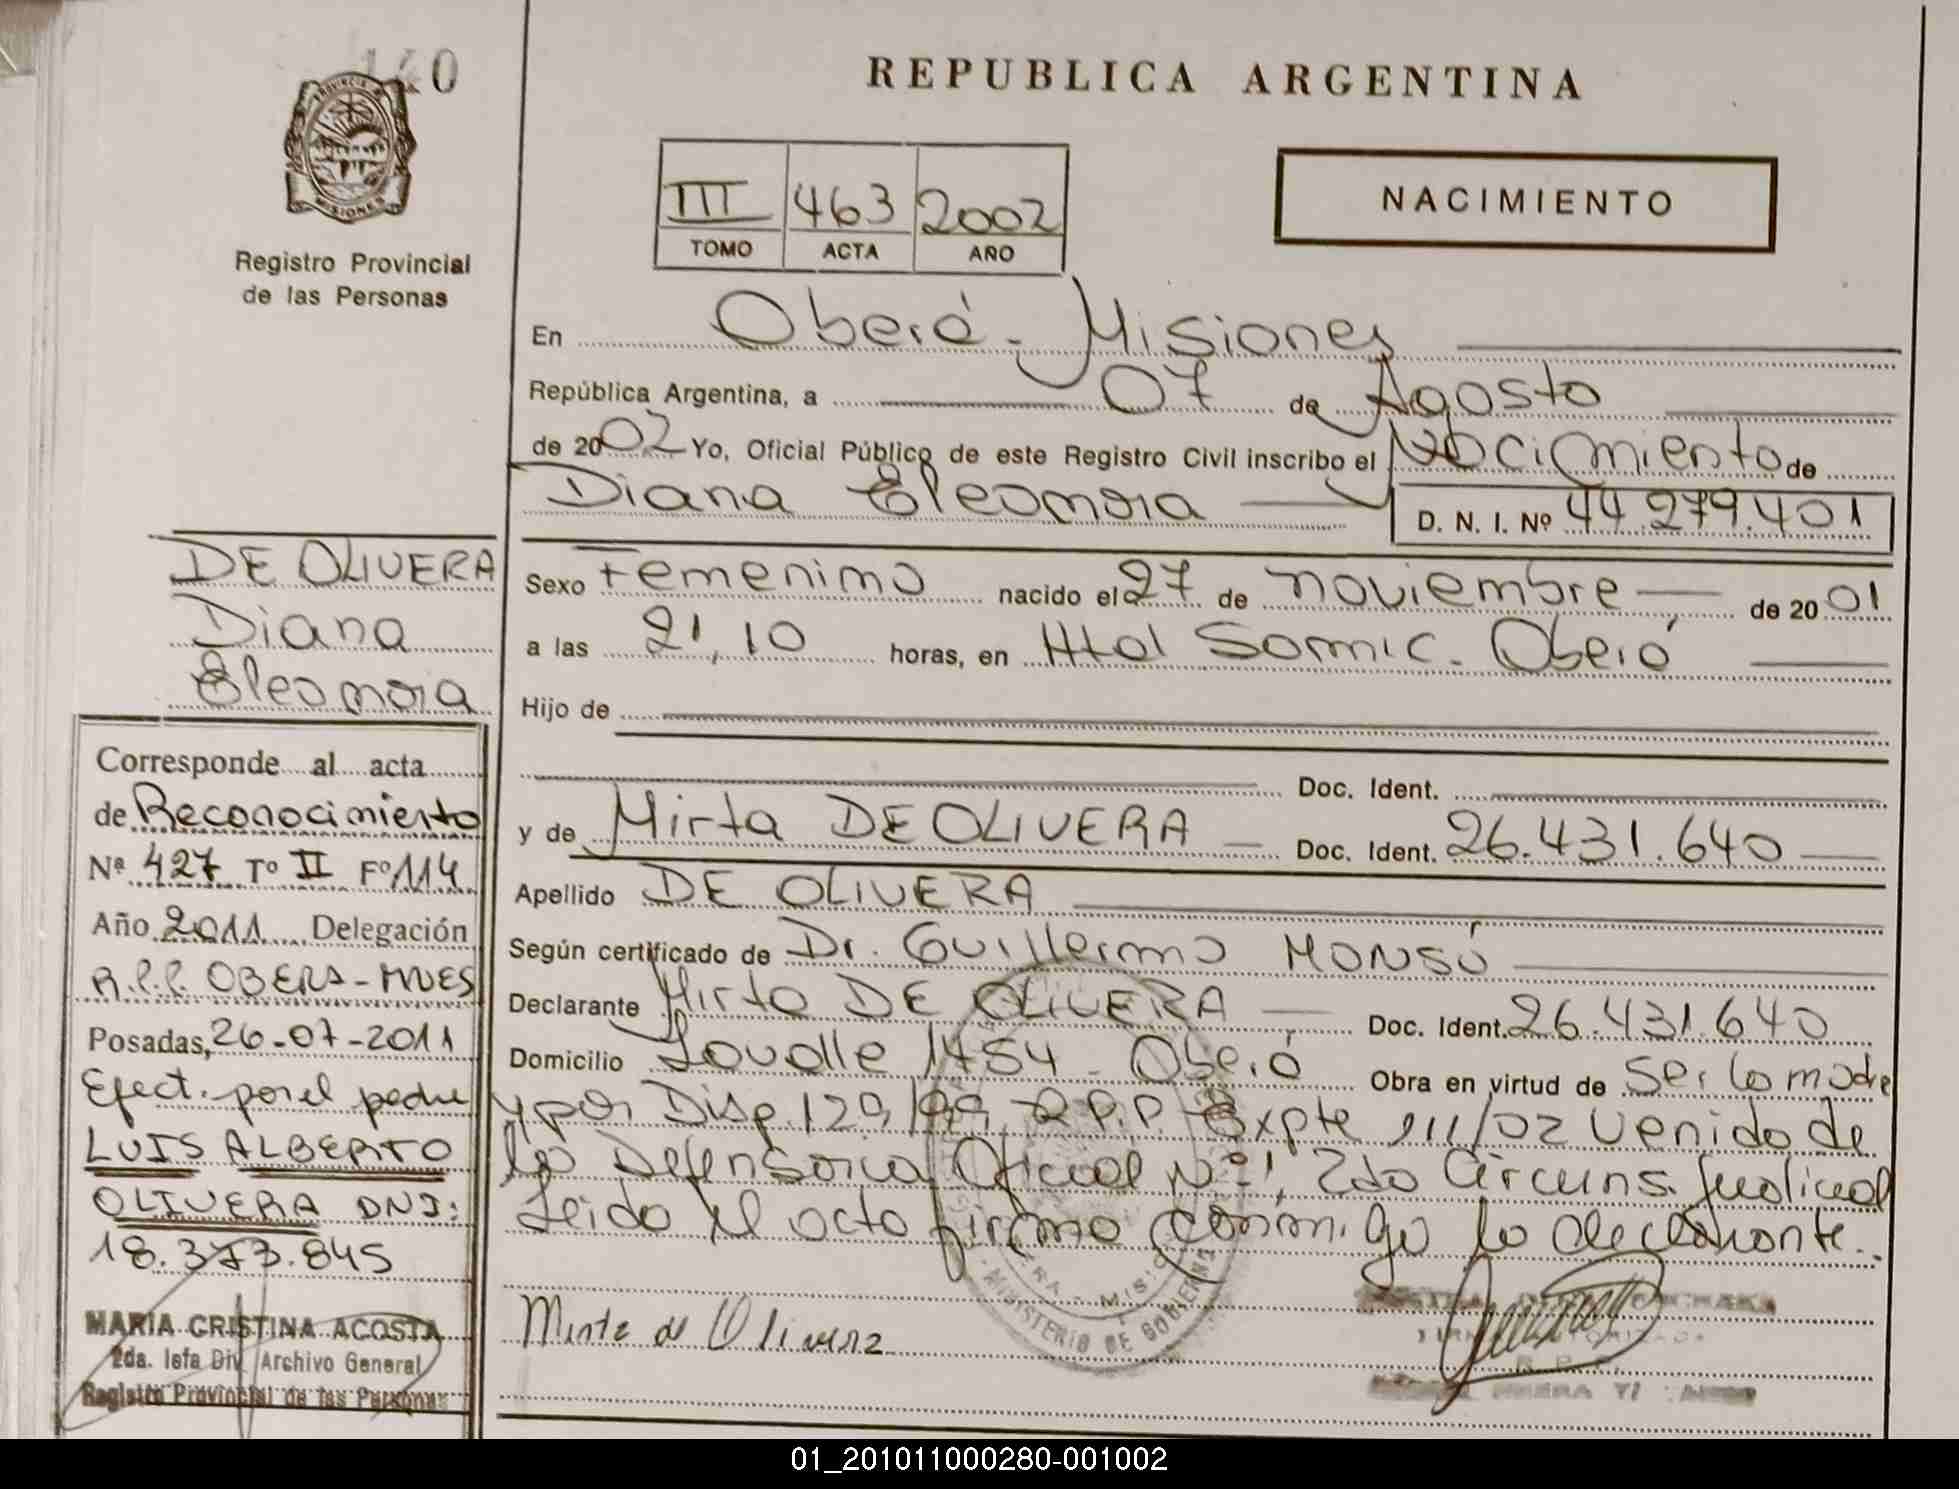 140
PROVINCIA DE
MISIONES
Registro Provincial
de las Personas
REPUBLICA ARGENTINA
III 463 2002
TOMO ACTA AÑO
NACIMIENTO
En Oberá - Misiones
República Argentina, a 07 de Agosto
de 2002 Yo, Oficial Público de este Registro Civil inscribo el Nacimiento de
Diana Eleonora
D. N. I. Nº 44.279.401
Sexo Femenino nacido el 27 de noviembre de 2001
a las 21,10 horas, en Htal Samic. Oberá
Hijo de
Doc. Ident.
y de Mirta DE OLIVERA Doc. Ident. 26.431.640
Apellido DE OLIVERA
Según certificado de Dr. Guillermo MONSÚ
Declarante Mirta DE OLIVERA Doc. Ident. 26.431.640
Domicilio Lavalle 1454 - Oberá Obra en virtud de ser la madre
y por Disp. 129/99 R.P.P. Expte 111/02 venido de
la Defensoría Oficial Nº 1, 2da Circuns. Judicial
Leido el acta firma conmigo la declarante.
Mirta de Olivera
MINISTERIO DE GOBIERNO
DE OLIVERA
Diana
Eleonora
Corresponde al acta
de Reconocimiento
Nº 427 Tº II Fº 114
Año 2011 Delegación
R.P.P. OBERA - MNES
Posadas, 26-07-2011
Efect. por el padre
LUIS ALBERTO
OLIVERA DNI:
18.373.845
MARIA CRISTINA ACOSTA
2da. Jefa Div. Archivo General
Registro Provincial de las Personas
01_201011000280-001002